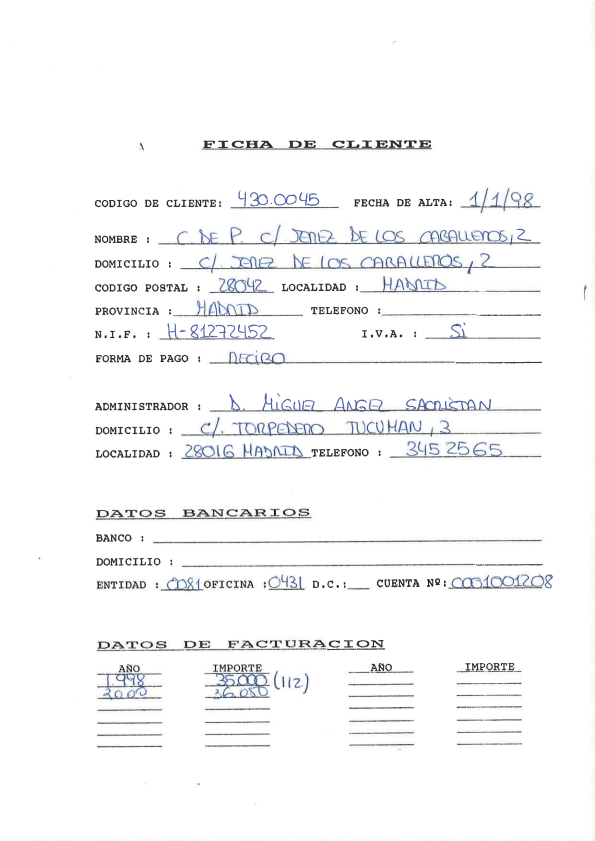 FICHA DE CLIENTE
CODIGO DE CLIENTE: 430.0045 FECHA DE ALTA: 1/1/98
NOMBRE : C. DE P. C/ JEREZ DE LOS CABALLEROS, 2
DOMICILIO : C/. JEREZ DE LOS CABALLEROS, 2
CODIGO POSTAL : 28042 LOCALIDAD : MADRID
PROVINCIA : MADRID TELEFONO :
N.I.F. : H-81272452 I.V.A. : Si
FORMA DE PAGO : RECIBO
ADMINISTRADOR : D. MIGUEL ANGEL SACRISTAN
DOMICILIO : C/. TORPEDERO TUCUMAN, 3
LOCALIDAD : 28016 MADRID TELEFONO : 345 25 65
DATOS BANCARIOS
BANCO :
DOMICILIO :
ENTIDAD : 0081 OFICINA : 0431 D.C.: CUENTA Nº: 0001001208
DATOS DE FACTURACION
AÑO IMPORTE AÑO IMPORTE
1.998 35.000 (112)
2000 36.050